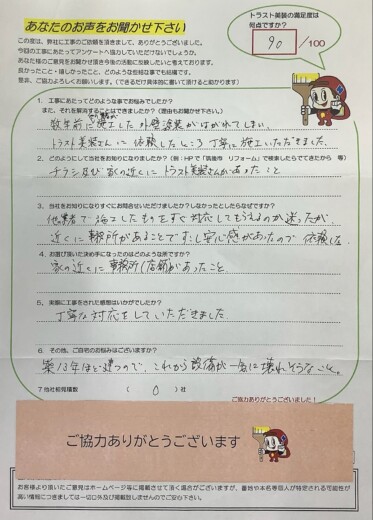 あなたのお声をお聞かせ下さい
トラスト美装の満足度は
何点ですか？
90 /100
この度は、弊社に工事のご依頼を頂きまして、ありがとうございました。
今回の工事にあたってアンケートへ協力していただけないでしょうか。
あなた様のご意見をお聞かせ頂き今後の活動に反映したいと考えております。
良かったこと・嬉しかったこと、どのような些細な事でも結構です。
是非、ご協力よろしくお願いします。（できるだけ具体的に書いて頂けると助かります）
1．工事にあたってどのような事でお悩みでしたか？
また、それを解消することはできましたか？（理由もお聞かせ下さい。）
数年前に施工した外壁塗装がはがれてしまい、
トラスト美装さんに依頼したところ丁寧に施工いただきました。
2．どのようにして当社をお知りになりましたか？（例：HPで「筑後市 リフォーム」で検索したらでてきたから 等）
チラシ及び家の近くにトラスト美装さんがあったこと
3．当社をお知りになりすぐにお問合せいただけましたか？しなかったとしたらなぜですか？
他業者で施工したものをすぐ対応してもらえるか迷ったが、
近くに事務所があることですし安心感があったので依頼した
4．お選び頂いた決め手になったのはどのような所ですか？
家の近くに事務所（店舗）があったこと
5．実際に工事をされた感想はいかがでしたか？
丁寧な対応をしていただきました
6．その他、ご自宅のお悩みはございますか？
築13年ほど建つので、これから設備が一気に壊れそうなこと。
7.当社相見積数 （ 0 ）社
ご協力ありがとうございました！
ご協力ありがとうございます
お客様より頂いたご意見はホームページ等に掲載させて頂く場合がございますが、番地や本名等個人が特定される可能性が
高い情報につきましては一切口外及び掲載致しませんのでご安心下さい。